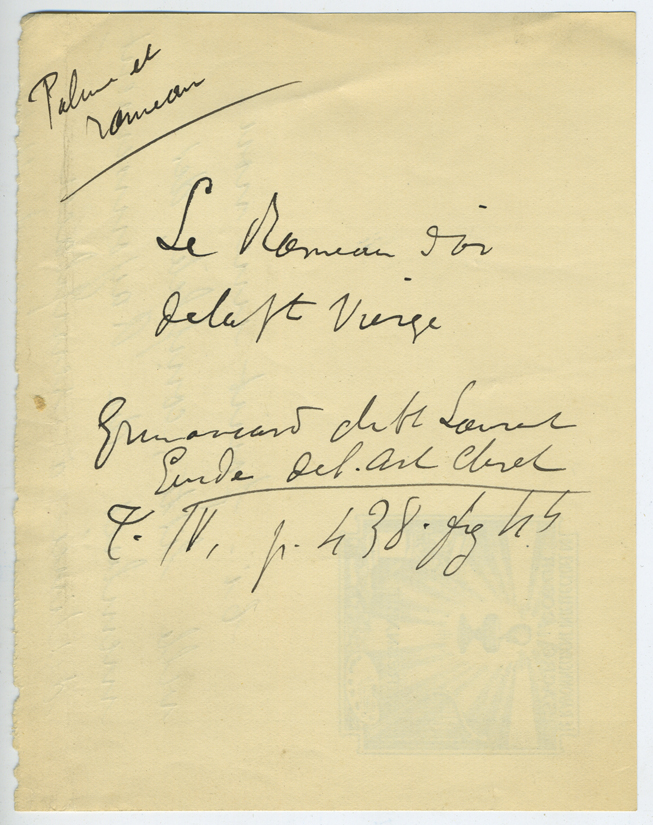 Palme et
rameau
Le Rameau d'or
de la Ste Vierge
Grimouard de St Laurent
Guide de l'art chret
T. IV, p. 438. fig